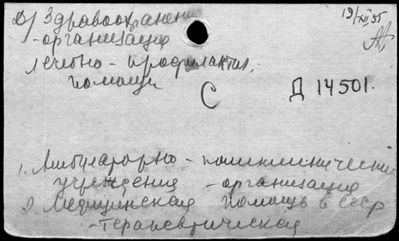 D) Здравоохранение
- организация
лечебно - профилактич.
помощи
19/XII 55
С
Д 14501.
1. Амбулаторно - поликлинические
учреждения - организация
2. Медицинская помощь в СССР
- терапевтическая